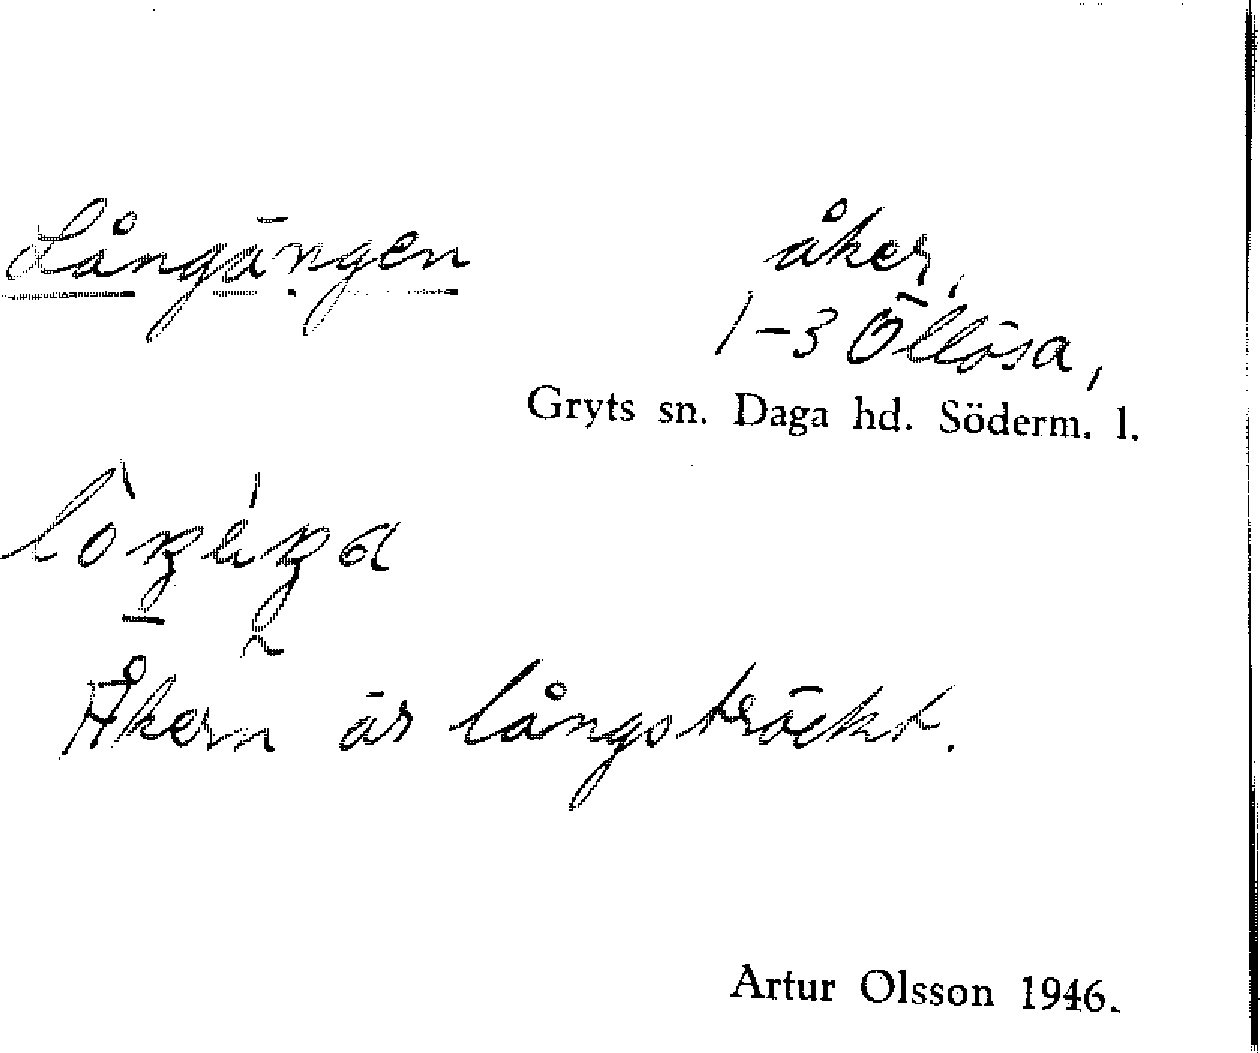 Långängen
åker,
1-3 Öllösa,
Gryts sn. Daga hd. Söderm. l.
Åkern är långsträckt.
Artur Olsson 1946.